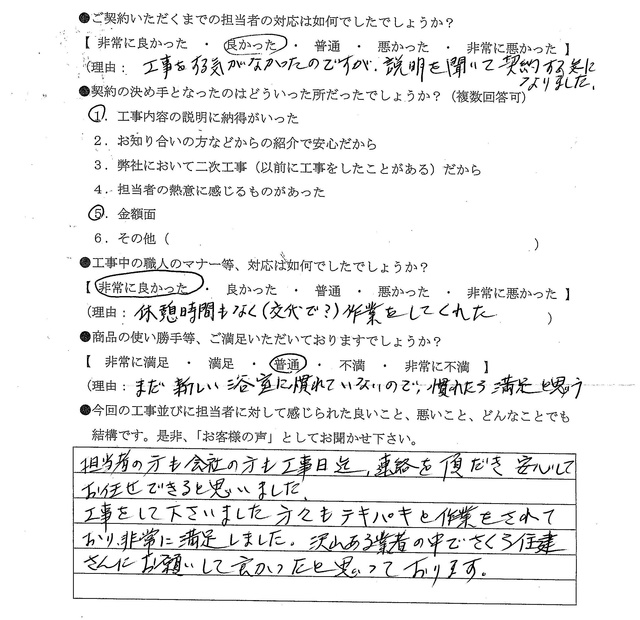 ●ご契約いただくまでの担当者の対応は如何でしたでしょうか？
【 非常に良かった ・ 良かった ・ 普通 ・ 悪かった ・ 非常に悪かった 】
（理由： 工事をする気がなかったのですが、説明を聞いて契約する気に
なりました。
●契約の決め手となったのはどういった所だったでしょうか？（複数回答可）
1．工事内容の説明に納得がいった
2．お知り合いの方などからの紹介で安心だから
3．弊社において二次工事（以前に工事をしたことがある）だから
4．担当者の熱意に感じるものがあった
5．金額面
6．その他（ ）
●工事中の職人のマナー等、対応は如何でしたでしょうか？
【 非常に良かった ・ 良かった ・ 普通 ・ 悪かった ・ 非常に悪かった 】
（理由： 休憩時間もなく（交代で？）作業をしてくれた ）
●商品の使い勝手等、ご満足いただいておりますでしょうか？
【 非常に満足 ・ 満足 ・ 普通 ・ 不満 ・ 非常に不満 】
（理由： まだ新しい浴室に慣れていないので、慣れたら満足と思う
●今回の工事並びに担当者に対して感じられた良いこと、悪いこと、どんなことでも
結構です。是非、「お客様の声」としてお聞かせ下さい。
担当者の方も会社の方も工事日迄、連絡を頂だき安心して
お任せできると思いました。
工事をして下さいました方々もテキパキと作業をされて
おり、非常に満足しました。沢山ある業者の中でさくら住建
さんにお願いして良かったと思っております。